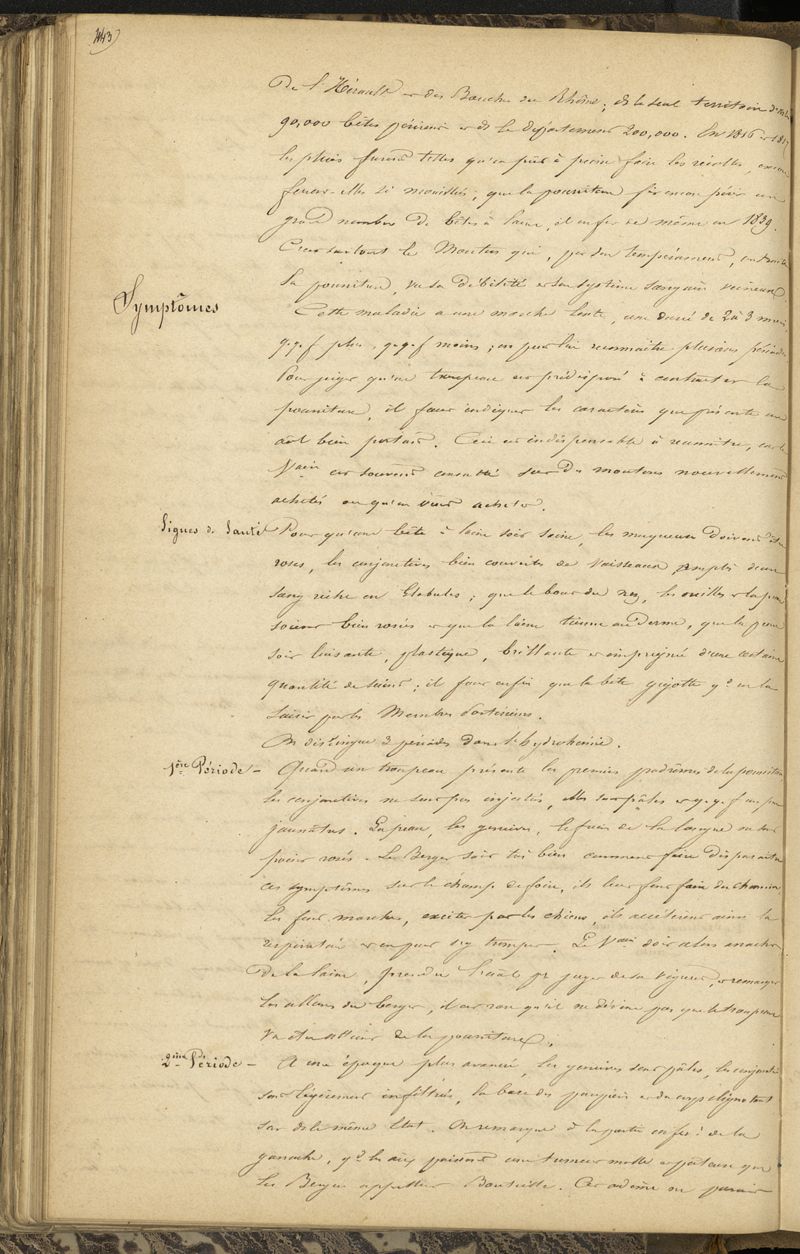 443
De l'Hérault et des Bouches du Rhône; ds le seul territoire d'Arles
90,000 bêtes périrent et ds le département 200,000. En 1816 et 1817
les pluies furent telles qu'on put à peine faire les récoltes, encore
furent-elles si mouillées; que la pourriture fit encore périr un
grand nombre de bêtes à laine, il en fut de même en 1839.
C'est surtout le Mouton qui, par son tempérament, contracte
la pourriture, vu sa débilité et son système sanguin veineux.
Symptômes
Cette maladie a une marche lente, une durée de 2 à 3 mois,
q.q.f plus, q.q.f moins; on peut lui reconnaître plusieurs périodes
Pour juger qu'un troupeau est prédisposé à contracter la
pourriture, il faut indiquer les caractères que présente un
bien portant. Ceci est indispensable à reconnaître, car le
Vaire est souvent consulté sur des moutons nouvellement
achetés ou qu'on veut acheter.
Signes de Santé
Pour qu'une bête à laine soit saine, les muqueuses doivent être
roses, les conjonctives bien couvertes de vaisseaux remplis d'un
sang riche en Globules; que le bout du nez, les oreilles et la peau
soient bien rosés et que la laine tienne au Derme, que la peau
soit luisante, élastique, brillante et imprégnée d'une certaine
quantité de suint; il faut enfin que la bête gigotte qd on la
saisit par les Membres postérieurs.
On distingue 3 périodes dans l'hydrohémie.
1ère Période -
Quand un troupeau présente les premiers prodrômes de la pourriture
les conjonctives ne sont pas injectées, elles sont pâles et q.q.f un peu
jaunâtres. La peau, les gencives, le frein de la langue ne sont
point rosés. Le Berger sait très bien comment faire disparaître
ces symptômes sur le champ de foire, ils leur font faire du chemin
les font marcher, exciter par les chiens, ils accélèrent ainsi la
respiration et on peut s'y tromper. Le Vaire doit alors arracher
de la laine, prendre l'animal pr juger de sa vigueur, et remarquer
les allures du berger, il est rare qu'il ne devine pas que le troupeau
de la pourriture.
2ème Période -
A une époque plus avancée, les gencives sont pâles, les conjonctives
sont légèrement infiltrées, la base des paupières et du corps clignotant
sont ds le même état. On remarque à la partie infre de la
ganache, qd les aux paissent une tumeur molle et pâteuse que
les Bergers appellent Bouteille. Cet œdème ne paraît